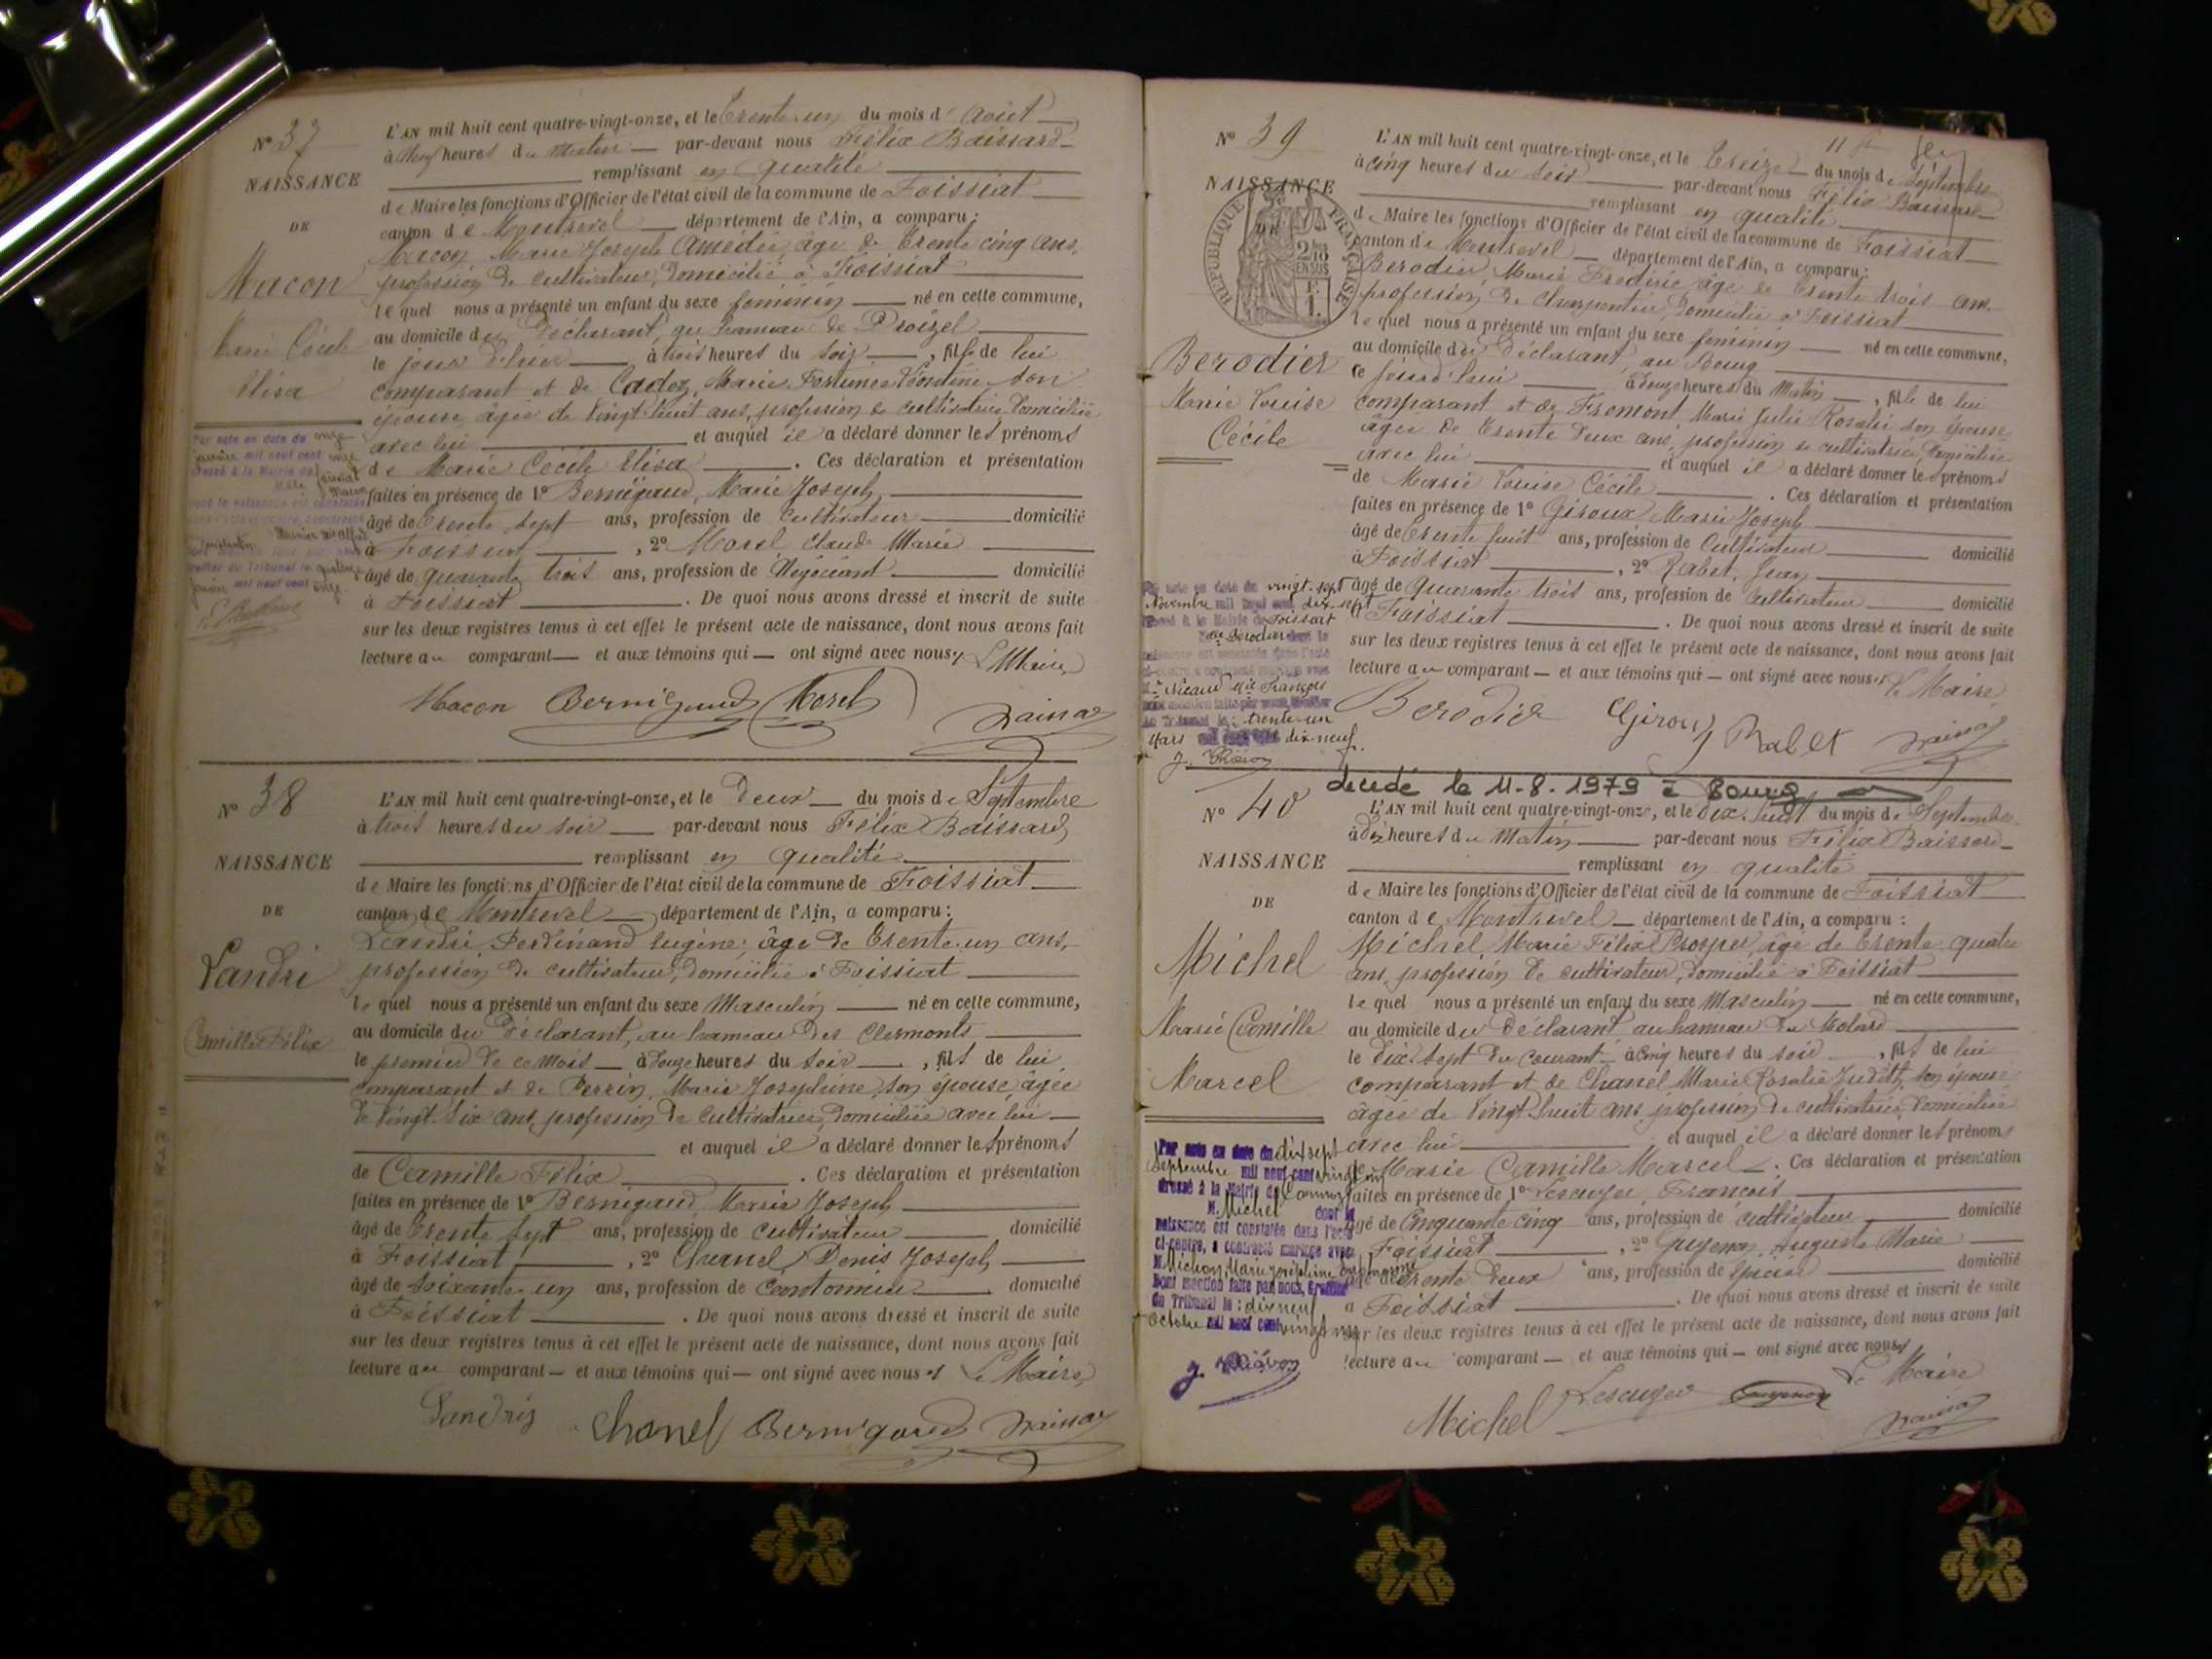 N° 37
NAISSANCE
DE
Macon
Marie Cécile
Elisa
L'AN mil huit cent quatre-vingt-onze, et le Trente-un du mois d'Août
à Neuf heures du Matin par-devant nous Félix Baissard
remplissant en qualité
de Maire les fonctions d'Officier de l'état civil de la commune de Foissiat
canton de Montrevel département de l'Ain, a comparu :
Macon Marie Joseph Amédée, âgé de Trente cinq ans,
profession de cultivateur, domicilié à Foissiat
lequel nous a présenté un enfant du sexe féminin né en cette commune,
au domicile du Déclarant, au hameau de
le jour d'hier à trois heures du soir, fille de lui
comparant et de Marie son
épouse âgée de vingt-huit ans, profession de cultivatrice domiciliée
avec lui et auquel il a déclaré donner les prénoms
de Marie Cécile Elisa. Ces déclaration et présentation
faites en présence de 1° Bernigaud, Marie Joseph
âgé de Trente sept ans, profession de Cultivateur domicilié
à Foissiat, 2° Morel Claude Marie
âgé de quarante trois ans, profession de Négociant domicilié
à Foissiat. De quoi nous avons dressé et inscrit de suite
sur les deux registres tenus à cet effet le présent acte de naissance, dont nous avons fait
lecture au comparant et aux témoins qui ont signé avec nous. Le Maire
Macon Bernigaud Morel
N° 38
NAISSANCE
DE
Landri
Camille Félix
L'AN mil huit cent quatre-vingt-onze, et le Deux du mois de Septembre
à trois heures du soir par-devant nous Félix Baissard
remplissant en qualité
de Maire les fonctions d'Officier de l'état civil de la commune de Foissiat
canton de Montrevel département de l'Ain, a comparu :
Landri Ferdinand Eugène, âgé de Trente-un ans,
profession de cultivateur, domicilié à Foissiat
lequel nous a présenté un enfant du sexe Masculin né en cette commune,
au domicile du Déclarant, au hameau des Clermonts
le premier de ce mois à douze heures du soir, fils de lui
comparant et de Perrin, Marie Joséphine son épouse, âgée
de vingt six ans, profession de cultivatrice, domiciliée avec lui
et auquel il a déclaré donner les prénoms
de Camille Félix. Ces déclaration et présentation
faites en présence de 1° Bernigaud Marie Joseph
âgé de Trente sept ans, profession de Cultivateur domicilié
à Foissiat, 2° Chanel Denis Joseph
âgé de soixante-un ans, profession de Cantonnier domicilié
à Foissiat. De quoi nous avons dressé et inscrit de suite
sur les deux registres tenus à cet effet le présent acte de naissance, dont nous avons fait
lecture au comparant et aux témoins qui ont signé avec nous Le Maire
Chanel Bernigaud
N° 39
NAISSANCE
DE
RÉPUBLIQUE FRANÇAISE
2/10
EN SUS
Berodier
Marie Louise
Cécile
L'AN mil huit cent quatre-vingt-onze, et le Treize du mois de Septembre
à cinq heures du soir par-devant nous Félix Baissard
remplissant en qualité
de Maire les fonctions d'Officier de l'état civil de la commune de Foissiat
canton de Montrevel département de l'Ain, a comparu :
Berodier Marie Frédéric âgé de trente trois ans,
profession de Charpentier, domicilié à Foissiat
lequel nous a présenté un enfant du sexe féminin né en cette commune,
au domicile du Déclarant, au Bourg
ce jourd'hui à douze heures du Matin, fille de lui
comparant et de Fromont Marie Julie Rosalie son épouse
âgée de Trente deux ans, profession de cultivatrice, domiciliée
avec lui et auquel il a déclaré donner les prénoms
de Marie Louise Cécile. Ces déclaration et présentation
faites en présence de 1° Giroux Marie Joseph
âgé de Trente huit ans, profession de Cultivateur domicilié
à Foissiat, 2° Rabet, Jean
âgé de Quarante trois ans, profession de Cultivateur domicilié
à Foissiat. De quoi nous avons dressé et inscrit de suite
sur les deux registres tenus à cet effet le présent acte de naissance, dont nous avons fait
lecture au comparant et aux témoins qui ont signé avec nous. Le Maire
Berodier Giroux Rabet
vingt-sept
Novembre mil neuf cent dix-sept
Nicaud
trente-un
Mars dix-neuf
décédé le 11-8-1979 à Bourg
N° 40
NAISSANCE
DE
Michel
Marie Camille
Marcel
L'AN mil huit cent quatre-vingt-onze, et le Dix-huit du mois de Septembre
à dix heures du Matin par-devant nous Félix Baissard
remplissant en qualité
de Maire les fonctions d'Officier de l'état civil de la commune de Foissiat
canton de Montrevel département de l'Ain, a comparu :
Michel, Marie Félix Prosper, âgé de Trente quatre
ans, profession de cultivateur, domicilié à Foissiat
lequel nous a présenté un enfant du sexe Masculin né en cette commune,
au domicile du Déclarant au hameau du Molard
le Dix-sept du courant à cinq heures du soir, fils de lui
comparant et de Chanel Marie Rosalie Judith, son épouse
âgée de vingt-huit ans, profession de cultivatrice, domiciliée
avec lui et auquel il a déclaré donner les prénoms
de Marie Camille Marcel. Ces déclaration et présentation
faites en présence de 1° Lescuyer François
âgé de Cinquante cinq ans, profession de cultivateur domicilié
à Foissiat, 2° Guyenon Auguste Marie
âgé de Trente Deux ans, profession de domicilié
à Foissiat. De quoi nous avons dressé et inscrit de suite
sur les deux registres tenus à cet effet le présent acte de naissance, dont nous avons fait
lecture au comparant et aux témoins qui ont signé avec nous
Le Maire
Michel Lescuyer Guyenon
Par acte en date du dix sept
Septembre mil neuf cent vingt un
dressé à la Mairie de
M. Michel dont la
naissance est constatée dans l'acte
ci-contre, a contracté mariage avec
M. Michon, Marie Joséphine
Dont mention faite par nous, Greffier
du Tribunal le : dix neuf
Octobre mil neuf cent vingt un